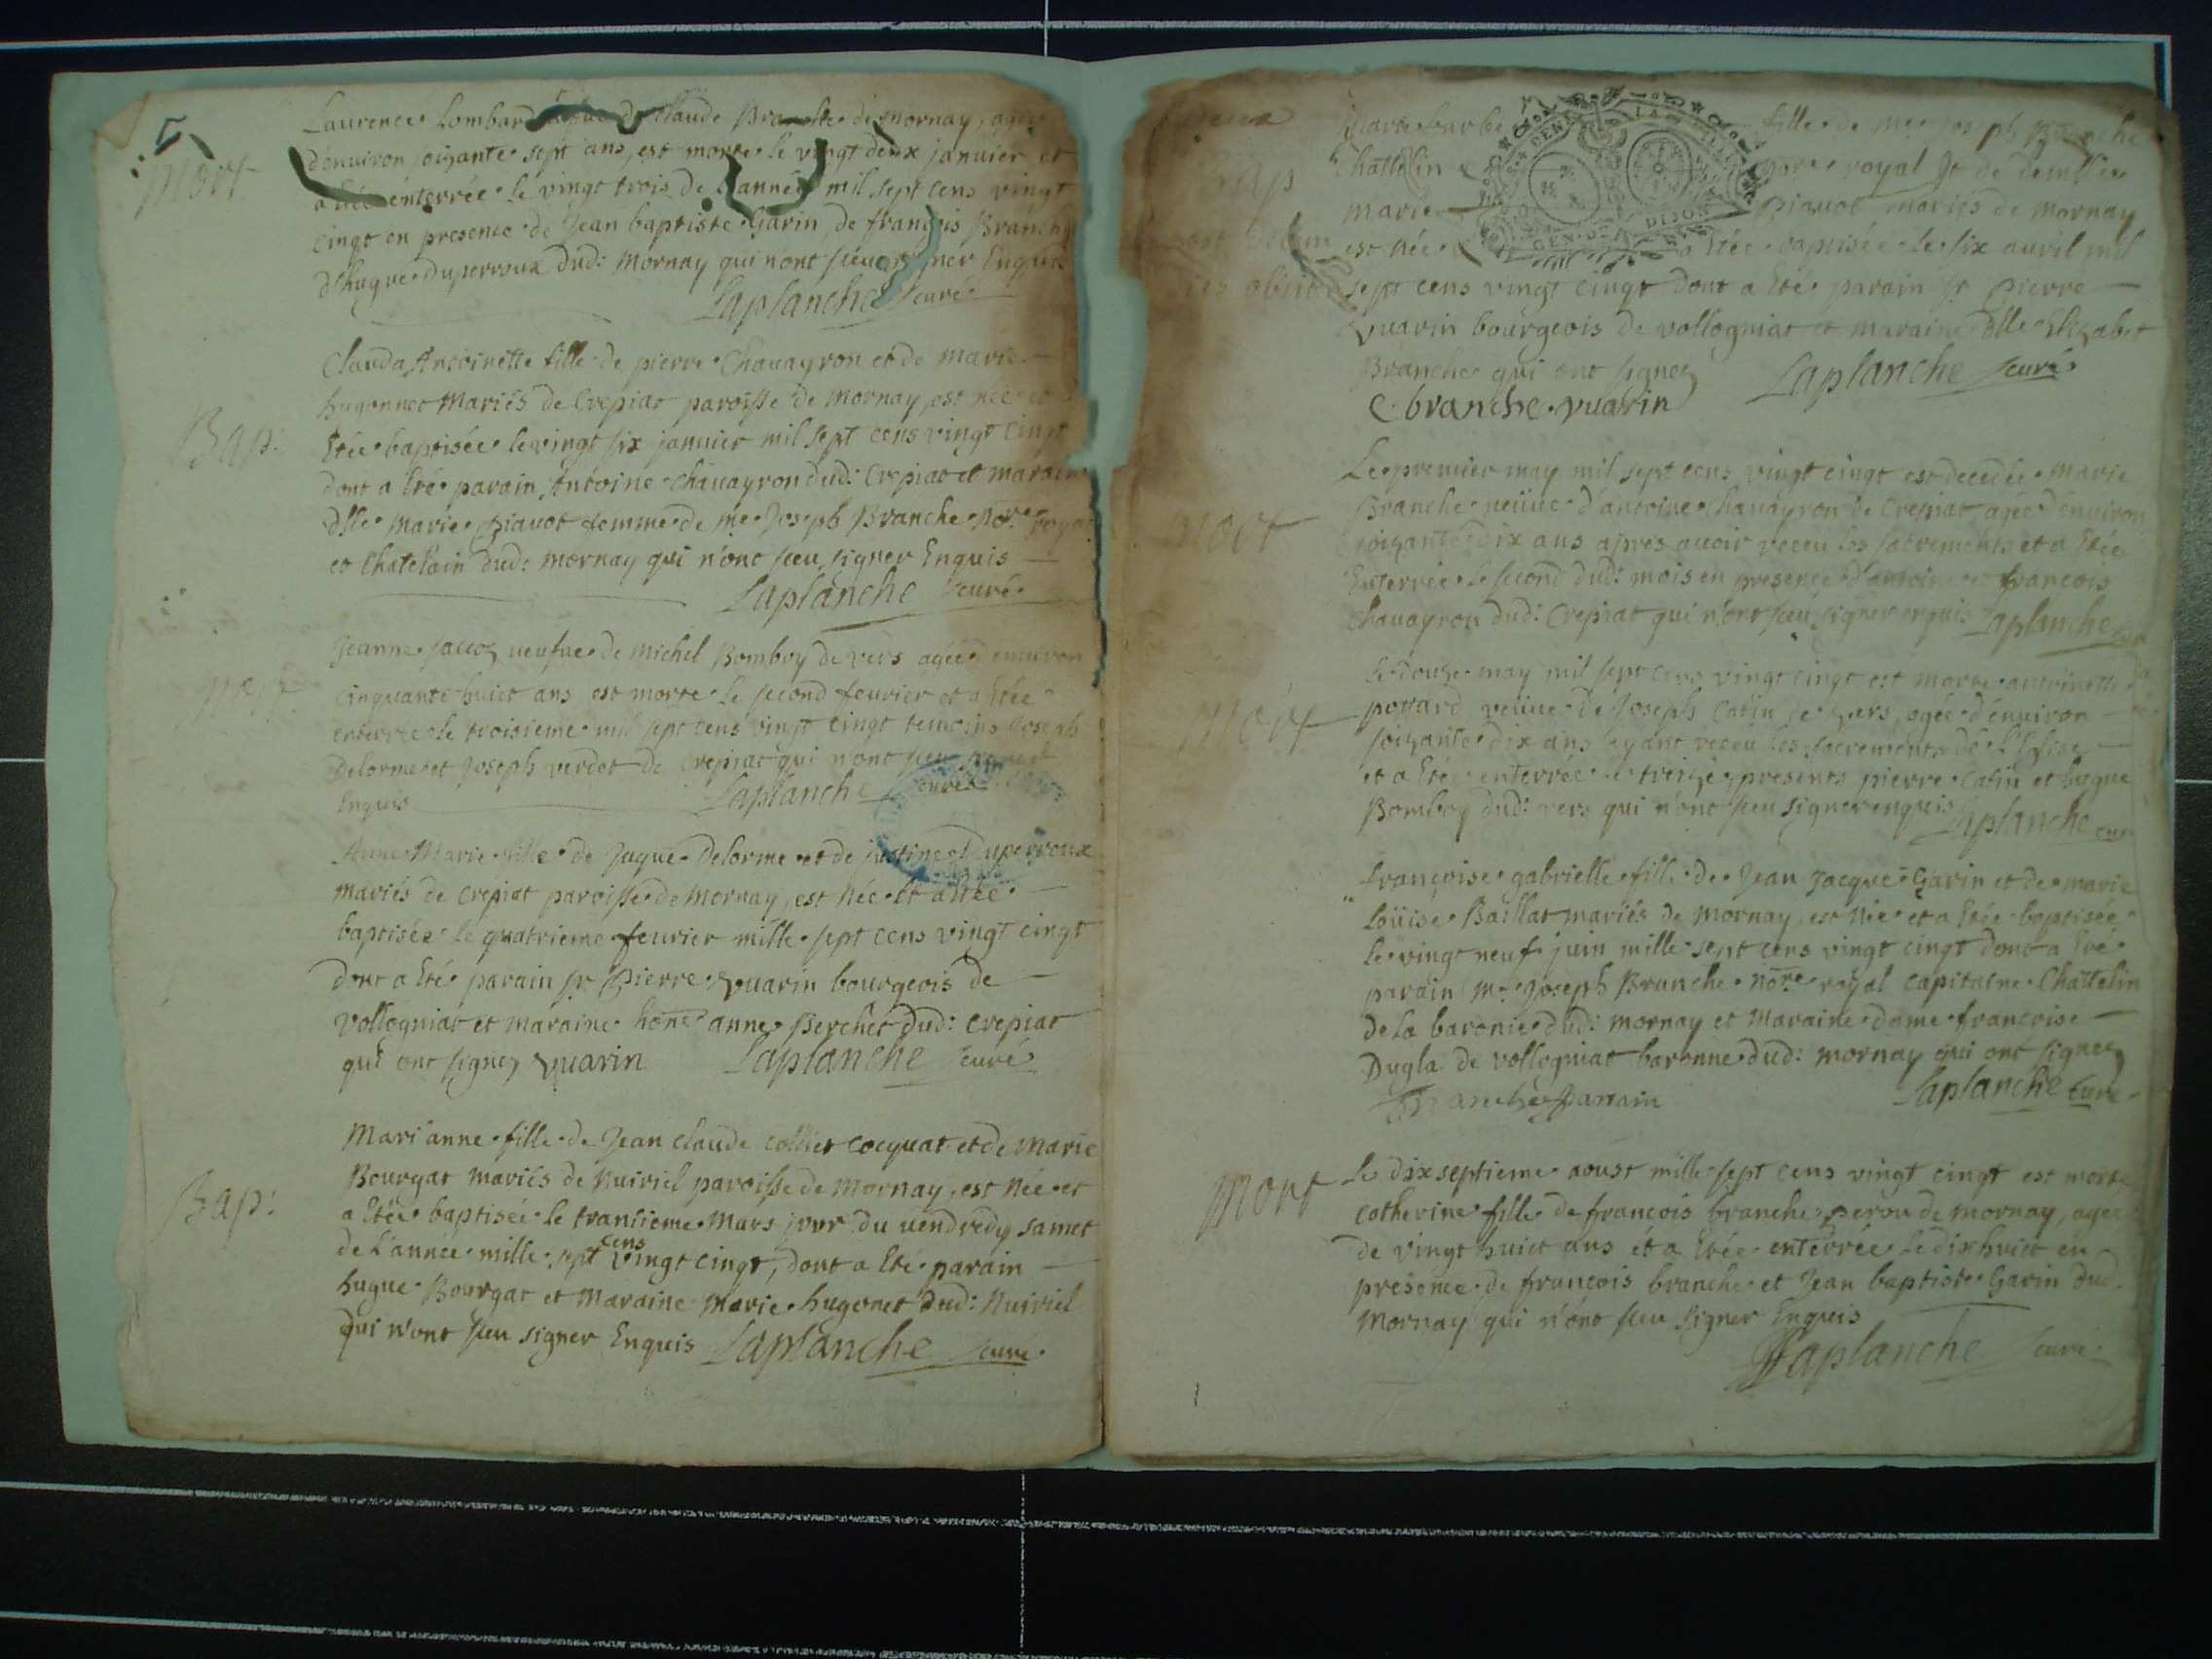 Mort
Laurence Lombard de Claude Branche de Mornay, agée
d'enuiron soizante sept ans, est morte le vingt deux januier et
a Eté enterrée le vingt trois de l'année mil sept cens vingt
cinqt en presence de Jean baptiste Garin, de françois Branche
d'hugue Duperroux dud: Mornay qui n'ont sceu signer Enquis
Laplanche curé
Bap:
Clauda Antoinette fille de pierre Chauayron et de marie
hugonnet Mariés de Crepiat paroisse de Mornay, est née et
Etée baptisée le vingt six januier mil sept cens vingt cinqt
dont a Eté parain Antoine Chauayron dud: Crepiat et maraine
dlle Marie Piauot femme de me Joseph Branche Nore royal
et Chatelain dud: mornay qui n'ont sceu signer Enquis
Laplanche curé
Mort
Jeanne Jaccoz veufue de Michel Bomboy de vers agée d'enuiron
cinquante huict ans est morte le second feurier et a Etée
enterrée le troisieme mil sept cens vingt cinqt temoins Joseph
Delorme et Joseph verdet de Crepiat qui n'ont sceu signer
Enquis Laplanche curé
Anne Marie fille de Jaque Delorme et de justine Duperroux
mariés de Crepiat paroisse de Mornay, est Née et a Etée
baptisée le quatrieme feurier mille sept cens vingt cinqt
dont a Eté parain sr Pierre Vuarin bourgeois de
Vollogniat et maraine hone anne Berchet dud: Crepiat
qui ont signez Vuarin Laplanche curé
Bap:
Mari'anne fille de Jean claude collet cocquat et de Marie
Bourgat mariés de Nuiriel paroisse de Mornay, est Née et
a Etée baptisée le trantieme Mars jour du uendredy Samct
de l'année mille sept cens vingt cinqt, dont a Eté parain
hugue Bourgat et Maraine Marie hugonet dud: Nuiriel
qui n'ont sceu signer Enquis Laplanche curé
Bap
obiit
Marie barbe fille de me Joseph Branche
Chattelin Nore royal Et de demlle
Marie Piauot mariés de Mornay
est Née a Etée baptisée le six auril mil
sept cens vingt cinqt dont a Eté parain sr Pierre
Vuarin bourgeois de vollogniat et maraine dlle Elizabet
Branche qui ont signez Laplanche curé
E. branche. vuarin
Mort
Le premier may mil sept cens vingt cinqt est decedée Marie
Branche veüue d'antoine Chauayron de Crepiat agée d'enuiron
soizante dix ans apres auoir receu les sacrements et a Etée
Enterrée le second dud: mois en presence d'antoine françois
Chauayron dud: Crepiat qui n'ont sceu signer enquis Laplanche curé
Mort
Le douze may mil sept cens vingt cinqt est morte antoinette
pottard veüue de Joseph Catin de vers, agée d'enuiron
soizante dix ans ayant receu les sacrements de l'Eglise
et a Etée enterrée le treize, presents pierre Catin et hugue
Bomboy dud: vers qui n'ont sceu signer enquis Laplanche cur
Françoise gabrielle fille de Jean Jacque Garin et de marie
Loüise Baillat mariés de Mornay est Née et a Etée baptisée
le vingt neuf juin mille sept cens vingt cinqt dont a Eté
parain Me Joseph Branche Nore royal capitaine Chattelin
De la baronie dud: mornay et Maraine dame francoise
Dugla de vollogniat baronne dud: mornay qui ont signez
Branche parrain Laplanche Curé
Mort
Le dix septieme aoust mille sept cens vingt cinqt est morte
catherine fille de francois branche perou de mornay, agée
de vingt huict ans et a Etée enterrée le dixhuict en
presence de francois branche et Jean baptiste Garin dud
Mornay qui n'ont sceu signer Enquis
Laplanche curé